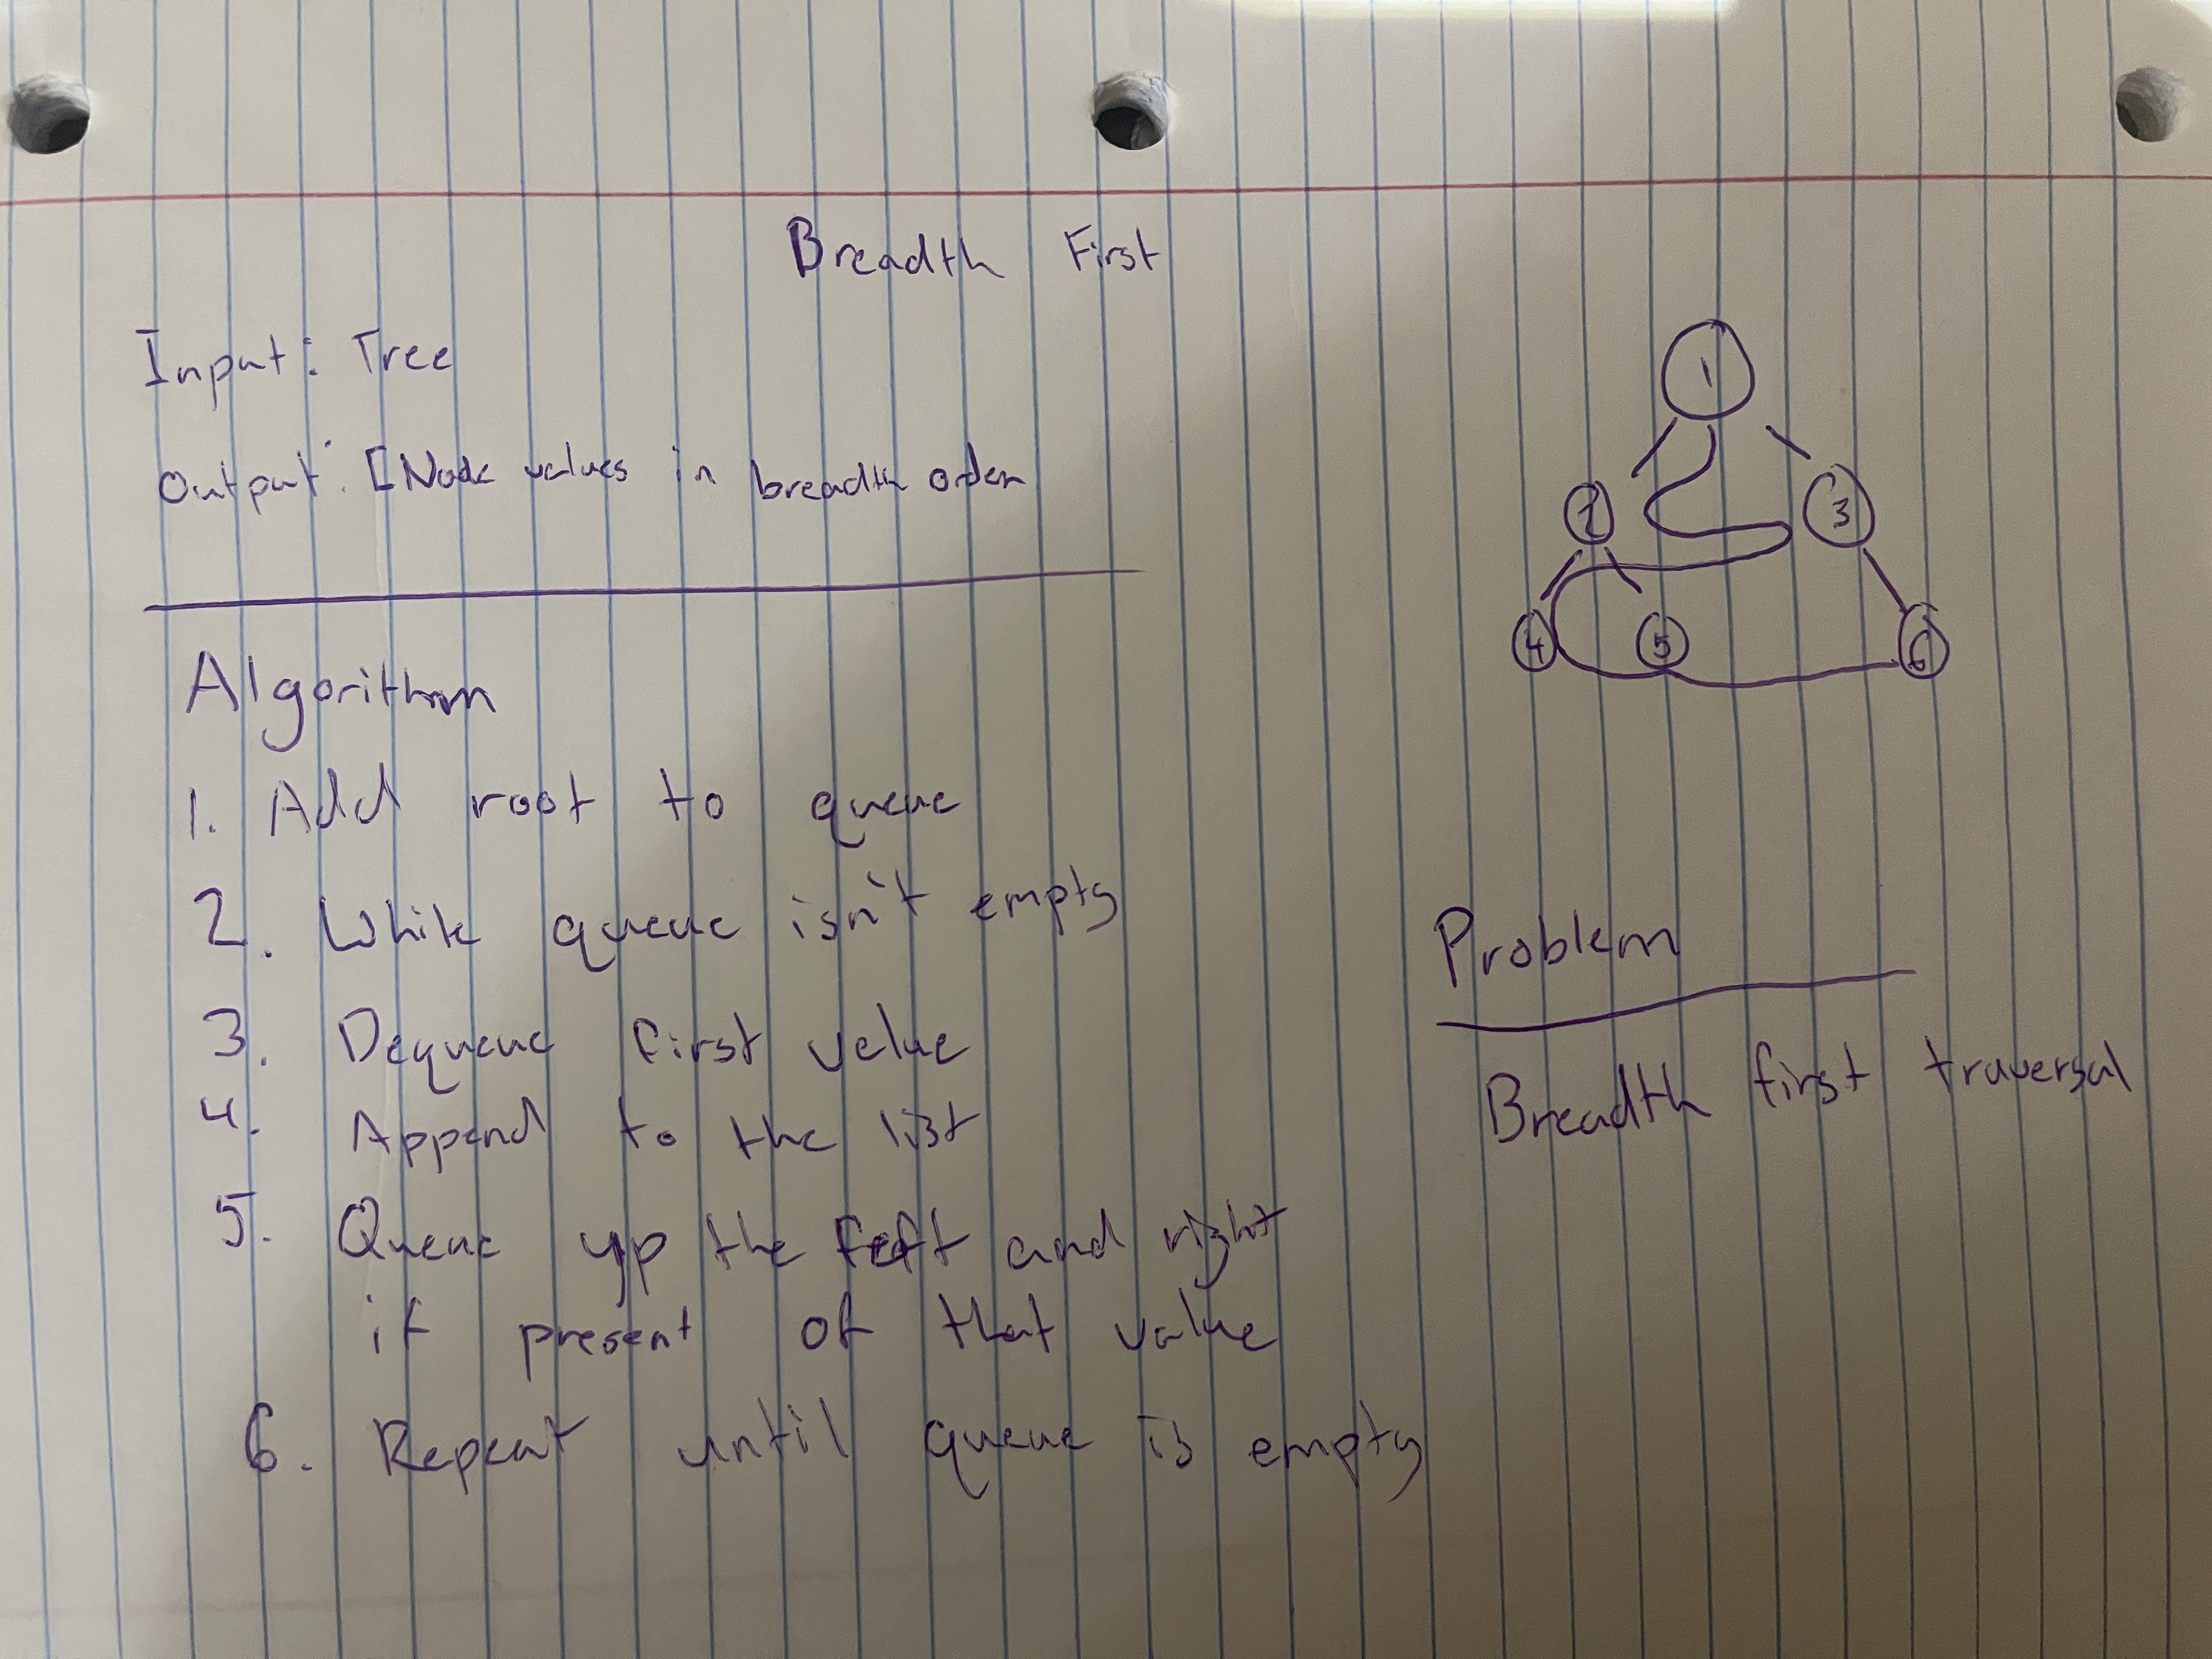 Breadth First
Input: Tree
Output: [Node values in breadth order
Algorithm
1. Add root to queue
2. While queue isn't empty
3. Dequeue first value
4. Append to the list
5. Queue up the left and right
if present of that value
6. Repeat until queue is empty
1
2
3
4
5
6
Problem
Breadth first traversal